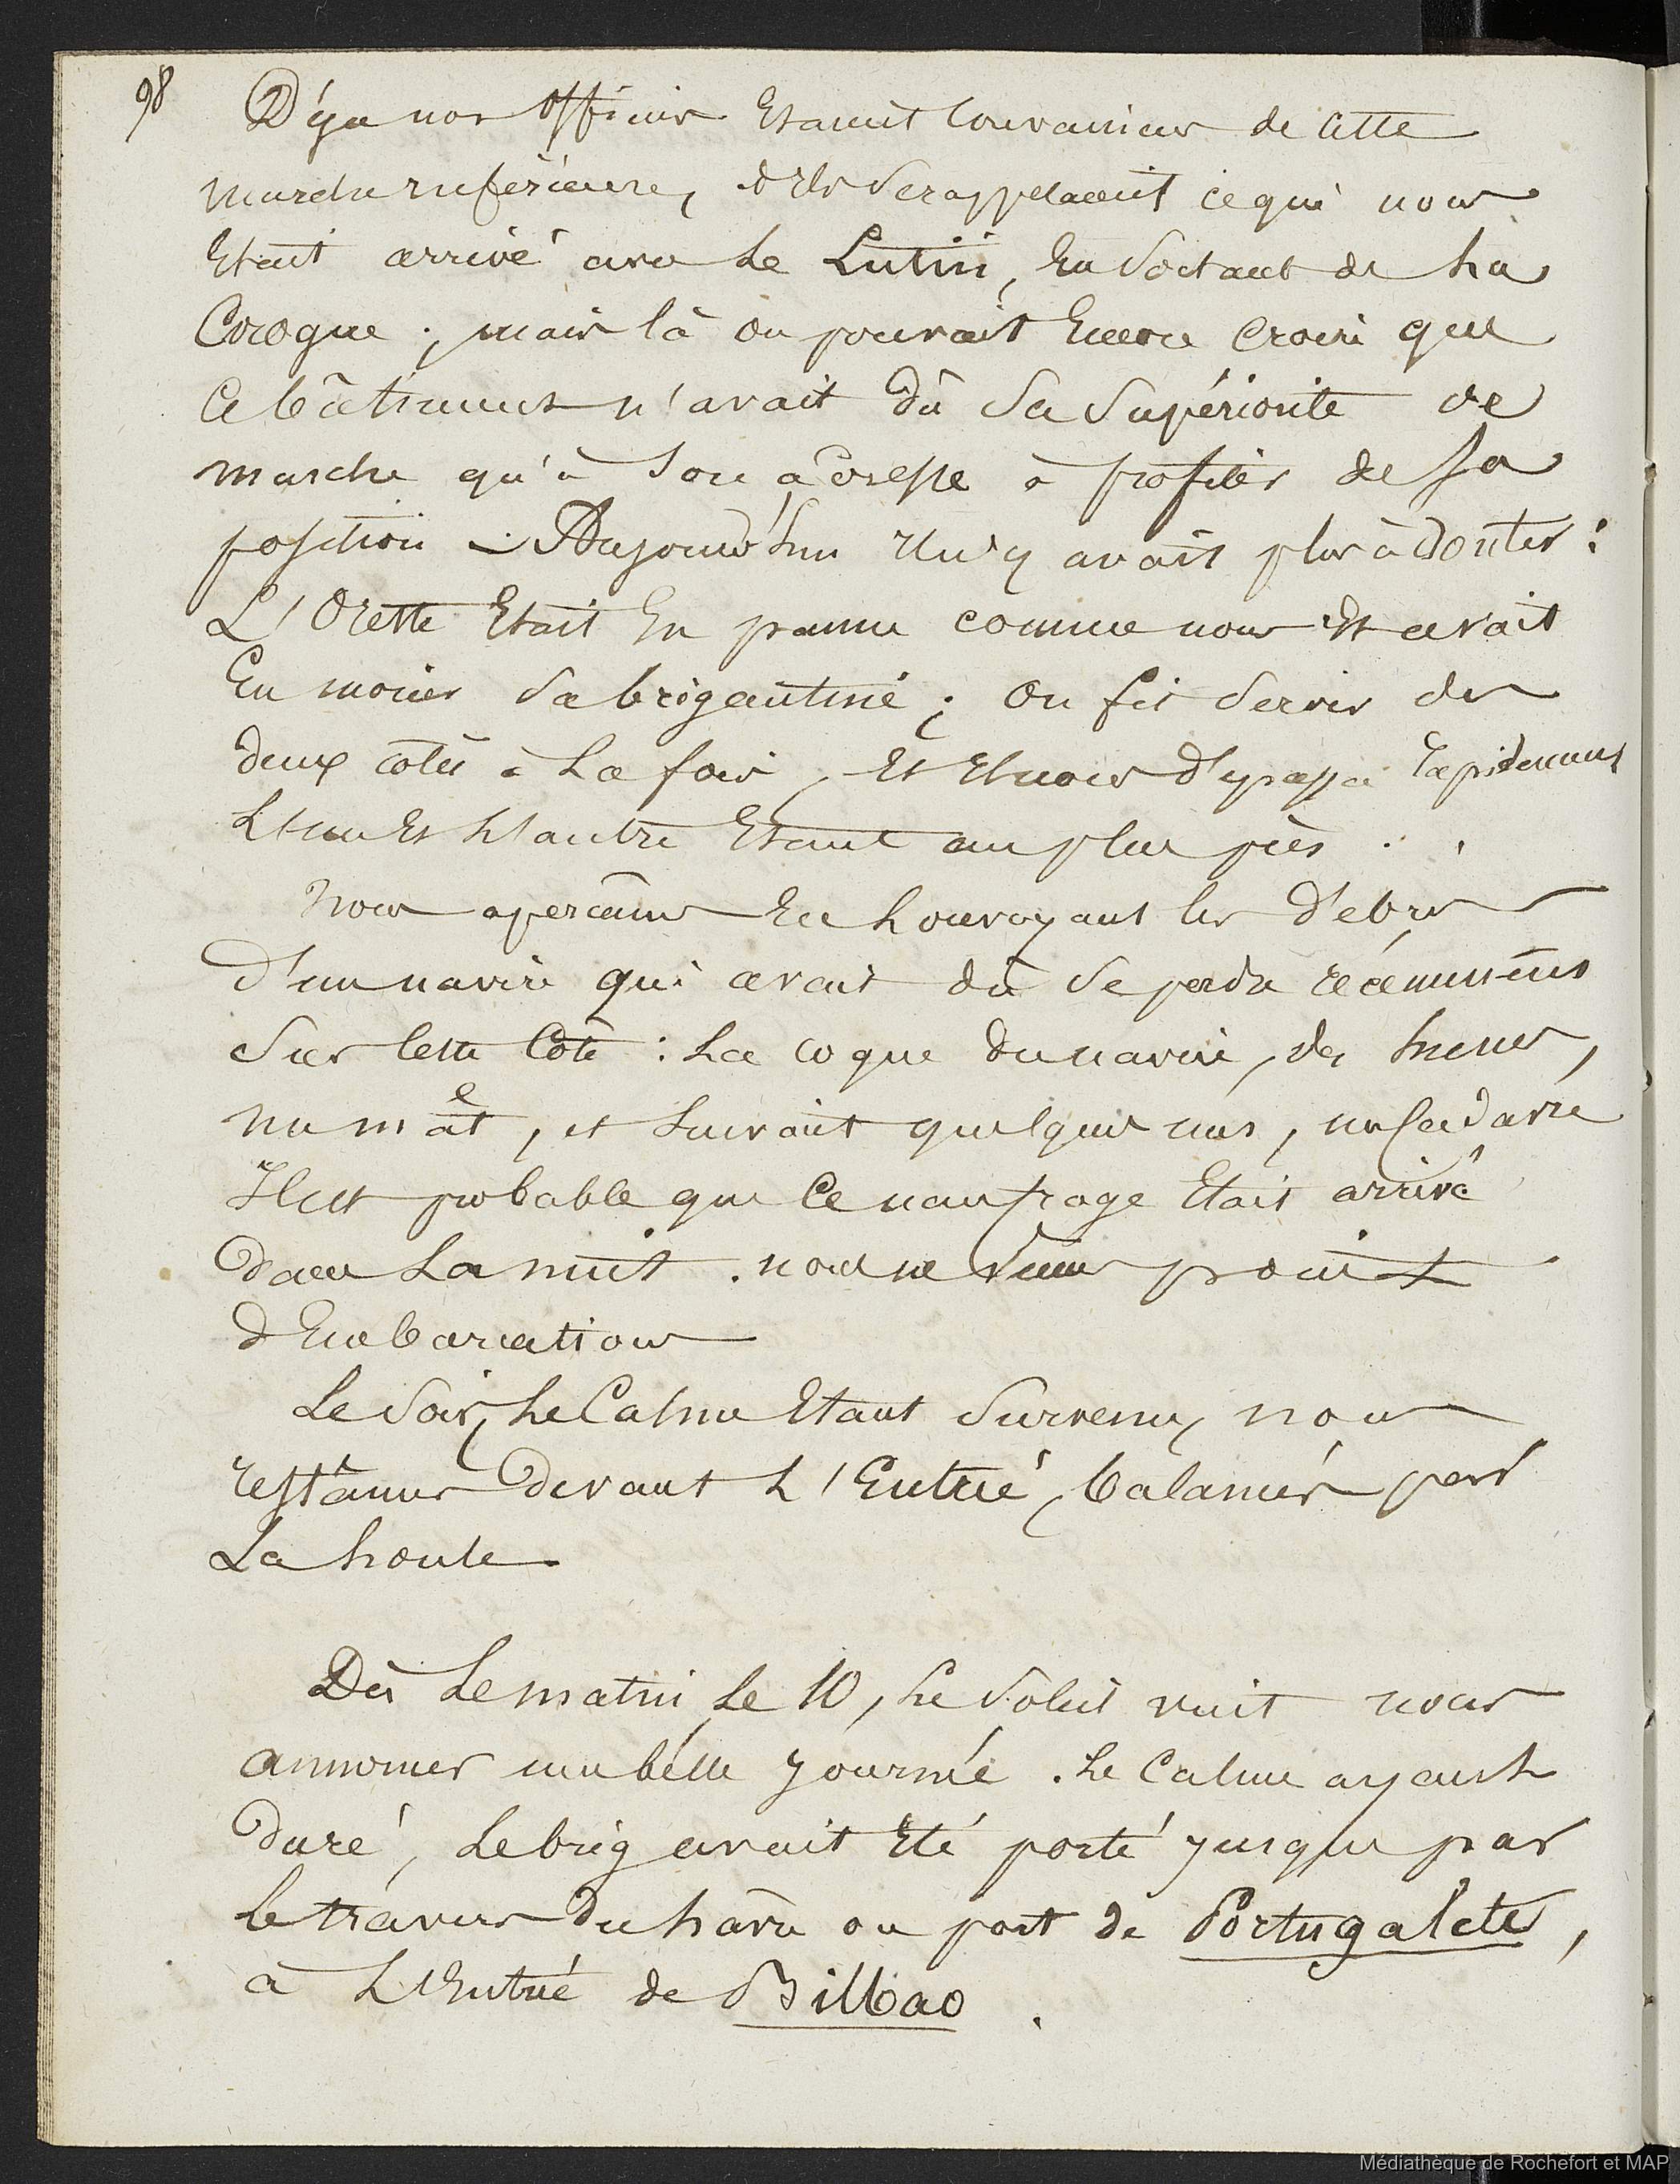 98
Déja nos officiers Etaient Convaincus de Cette
marche inférieure, & Ils se rappelaient ce qui nous
Etait arrivé avec Le Lutin, En sortant de La
Corogne ; mais là on pouvait Encore Croire que
Ce bâtiment n'avait dû Sa Supériorité de
marche qu'à Son adresse à profiter de Sa
position . Aujourd'hui Il n'y avait plus à douter :
L'Orette Etait En panne comme nous Et avait
En moins Sa brigantine ; On fit Servir des
deux côtés à La fois, Et Elle nous dépassa rapidement
L'un Et L'autre Etant au plus près .
Nous aperçûmes En Louvoyant les débris
d'un navire qui avait dû Se perdre récemment
Sur Cette Côte : La coque du navire, des hunes,
un mât, et Suivant quelques uns, un Cadavre
Il est probable que Ce naufrage Etait arrivé
dans La nuit . nous ne vîmes point
d'Embarcations
Le Soir, Le Calme Etant Survenu, nous
restâmes devant L'Entrée, balancés par
La houle
Dès Le matin Le 10, Le Soleil vint nous
annoncer une belle journée . Le Calme ayant
duré, Le brig avait Eté porté jusque par
Le travers du hâvre ou port de Portugalete,
à L'Entrée de Bilbao .
Médiathèque de Rochefort et MAP